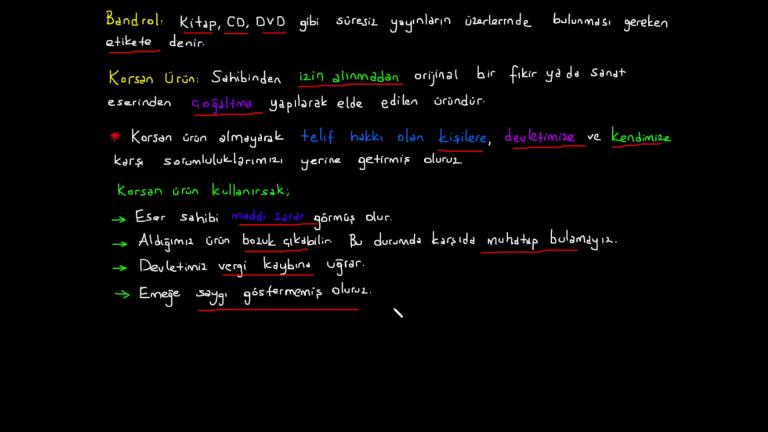 Bandrol: Kitap, CD, DVD gibi süresiz yayınların üzerlerinde bulunması gereken
etikete denir.
Korsan Ürün: Sahibinden izin alınmadan orijinal bir fikir ya da sanat
eserinden çoğaltma yapılarak elde edilen üründür.
* Korsan ürün almayarak telif hakkı olan kişilere, devletimize ve kendimize
karşı sorumluluklarımızı yerine getirmiş oluruz
Korsan ürün kullanırsak;
→ Eser sahibi maddi zarar görmüş olur.
→ Aldığımız ürün bozuk çıkabilir. Bu durumda karşıda muhatap bulamayız.
→ Devletimiz vergi kaybına uğrar.
→ Emeğe saygı göstermemiş oluruz.